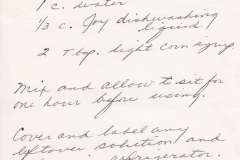 1 c. water
1/3 c. Joy dishwashing
liquid
2 Tbsp. light corn syrup
Mix and allow to sit for
one hour before using.
Cover and label any
leftover solution and
refrigerator.